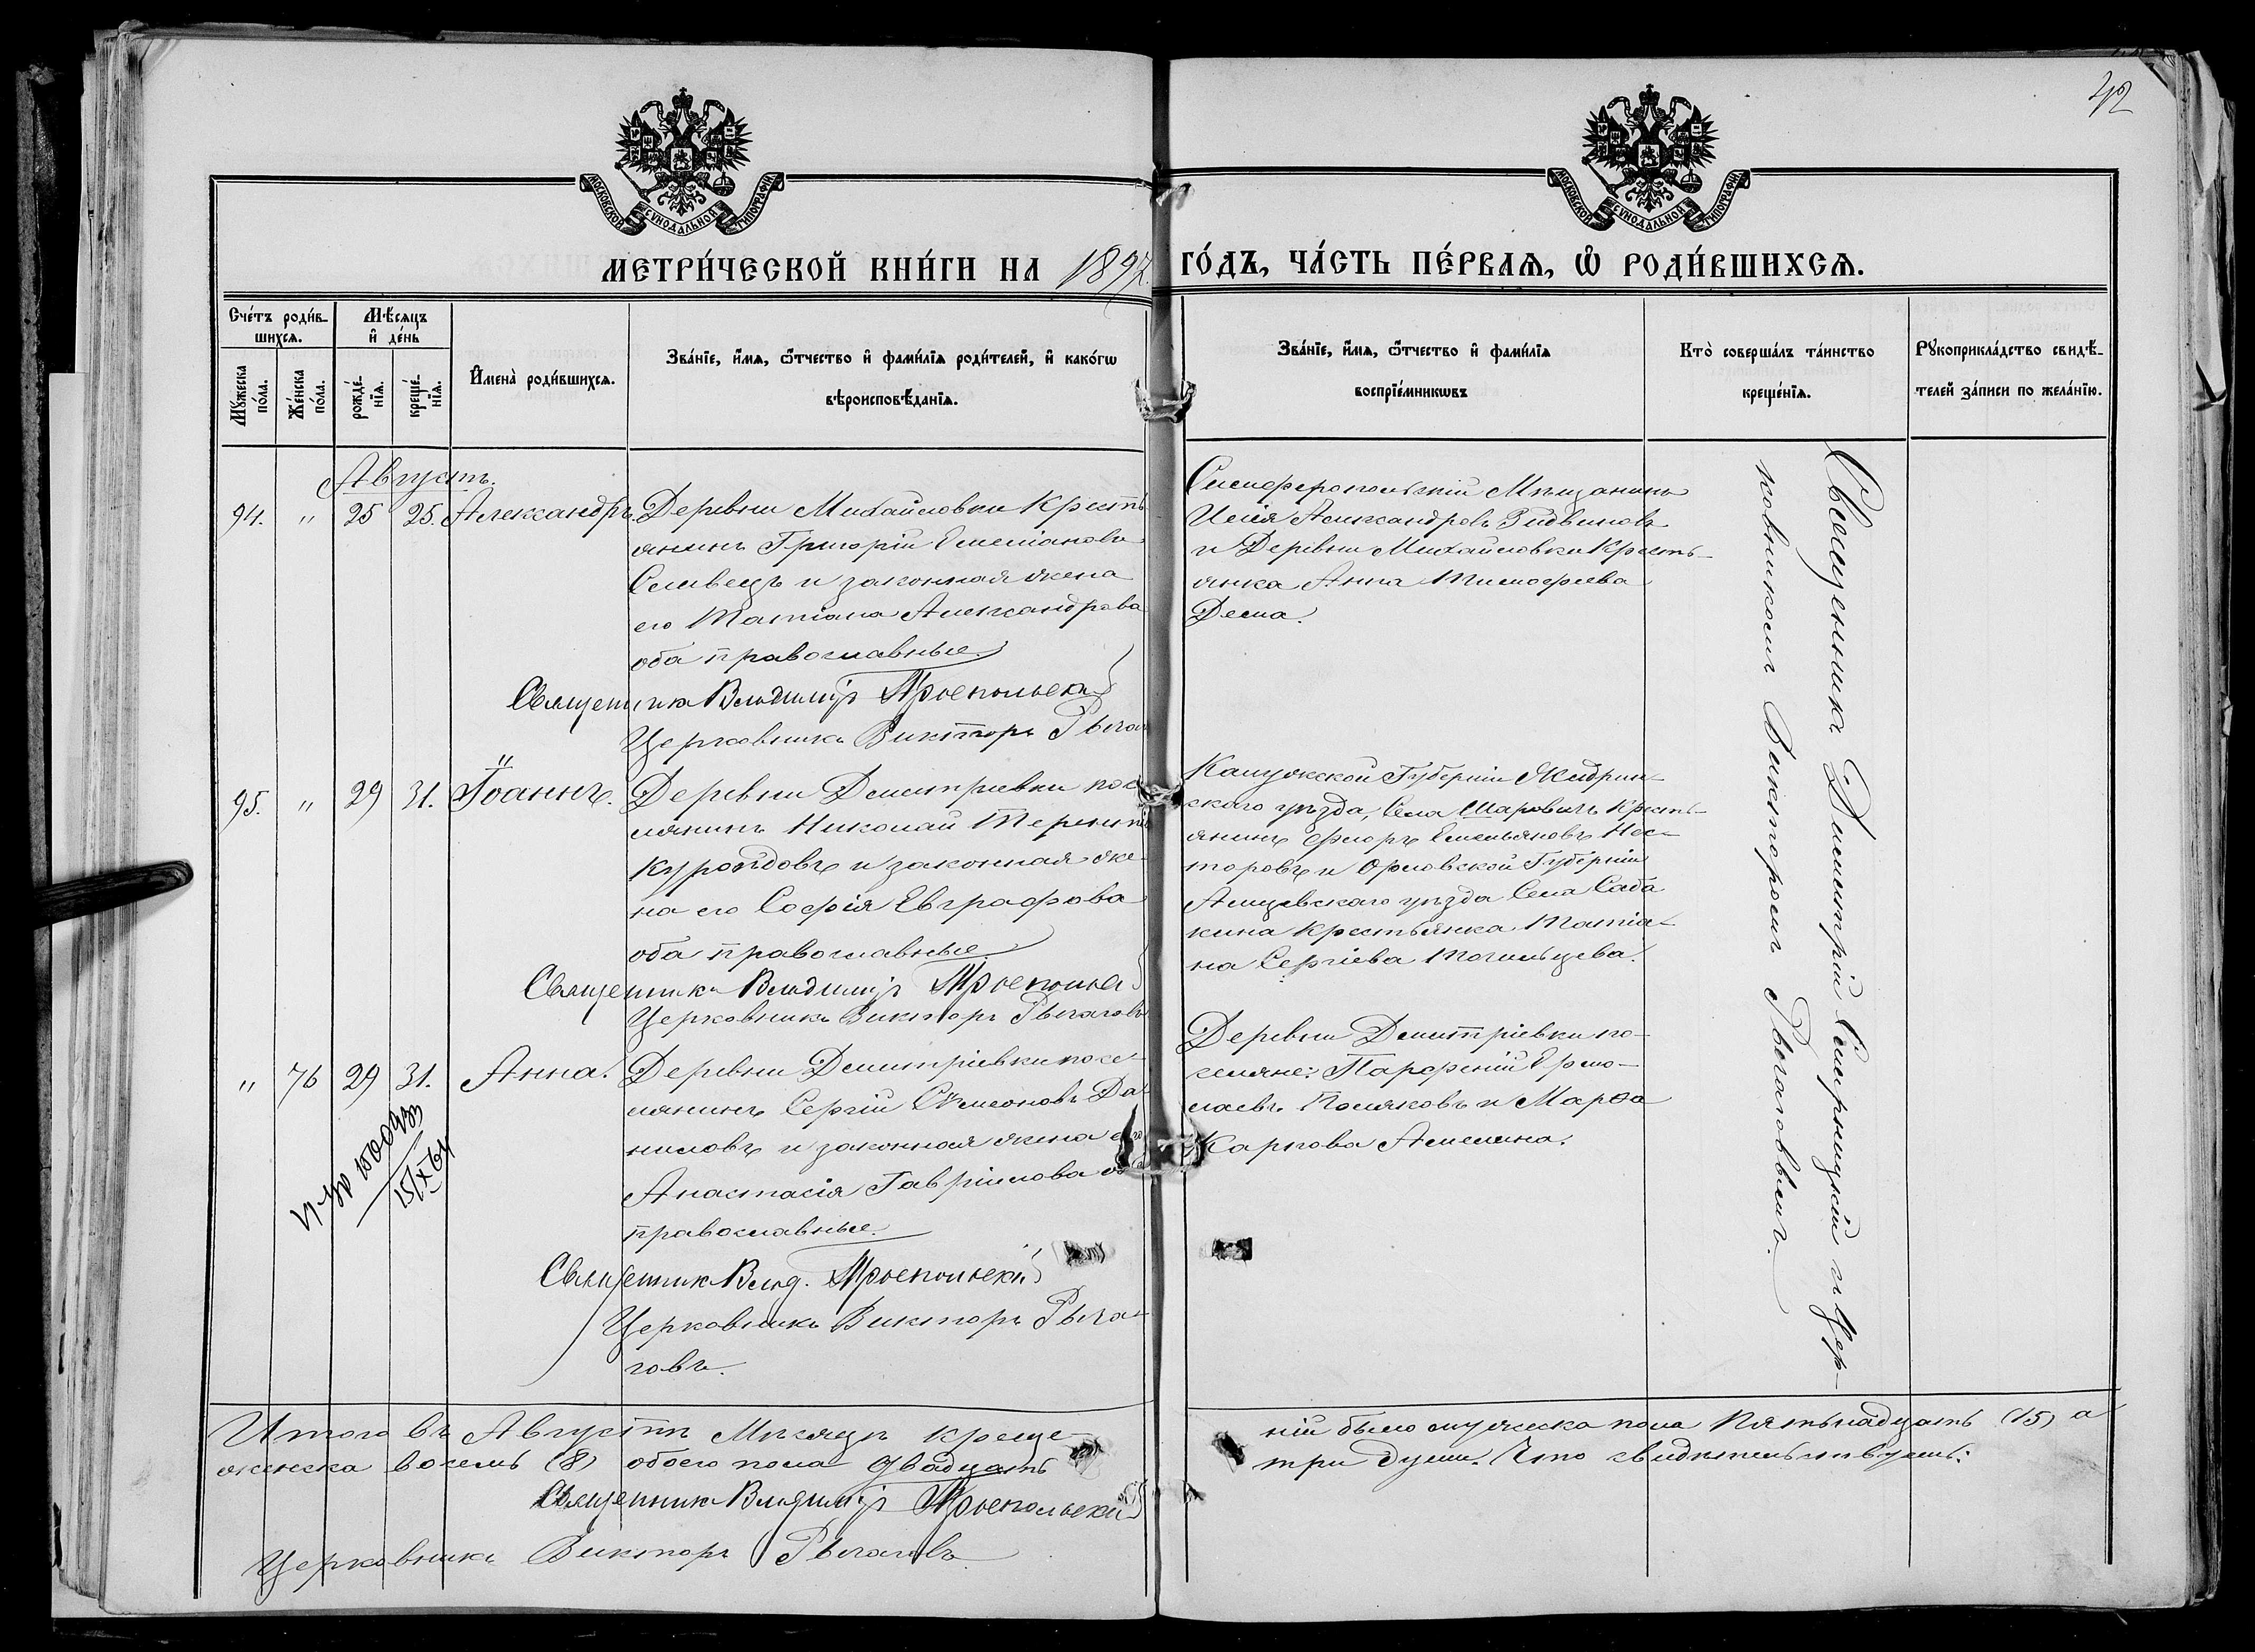 42
МОСКОВСКОЙ СѴНОДАЛЬНОЙ ТИПОГРАФІИ
МОСКОВСКОЙ СѴНОДАЛЬНОЙ ТИПОГРАФІИ
МЕТРИ́ЧЕСКОЙ КНИ́ГИ НА 1897. ГО́ДЪ, ЧА́СТЬ ПЕ́РВАѦ, Ѡ҆ РОДИ́ВШИХСѦ.
Сче́тъ роди́в-
шихсѧ.
Мѣ́сѧцъ
и҆ де́нь
Мꙋ́жеска
по́ла.
Же́нска
по́ла.
рожде́-
нїѧ.
креще́-
нїѧ.
И҆мена̀ роди́вшихсѧ.
Зва́нїе, и҆́мѧ, ѻ҆́тчество и҆ фами́лїѧ роди́телей, и҆ како́гѡ
вѣроисповѣ́данїѧ.
Зва́нїе, и҆́мѧ, ѻ҆́тчество и҆ фами́лїѧ
воспрїе́мникѡвъ
Кто̀ соверша́лъ та́инство
креще́нїѧ.
Рꙋкоприкла́дство свидѣ́-
телей за́писи по жела́нїю.
Августъ.
94. " 25 25. Александръ.
Деревни Михайловки Кресть
янинъ Григорій Емеліановъ
Селивецъ и законная жена
его Татіана Александрова
оба православные.
Священникъ Владиміръ Троепольскій
Церковникъ Викторъ Рыча
Симферопольскій Мѣщанинъ
Илія Александровъ
и Деревни Михайловки Кресть-
янка Анна Тимофеева
Десна.
95. " 29 31. Іоаннъ.
Деревни Димитріевки посе
лянинъ Николай Терентіе
Куроѣдовъ и законная же-
на его Софія Евграфова
оба православные.
Священникъ Владиміръ Троепольс
Церковникъ Викторъ Рычаговъ
Калужской Губерніи Жидрин-
скаго уѣзда, Села Шаровичъ Кресть-
янинъ Флоръ Емельяновъ Нес-
торовъ и Орловской Губерніи
уѣзда Села Саба
кина Крестьянка Татіа-
на Сергіева
" 76 29 31. Анна.
Деревни Димитріевки посе-
лянинъ Сергій Сѷмеоновъ Да-
ниловъ и законная жена его
Анастасія Гавріилова об
православные.
Священник Влад. Троепольскій
Церковникъ Викторъ Рыча-
говъ.
15/X 61
Деревни Димитріевки по-
селяне: Парфеній Ермо-
лаевъ Поляковъ и Марѳа
Карпова Амелина.
Священникъ Димитрій Смирницкій и Цер-
ковникомъ Викторомъ Рычаговымъ.
Итого въ Августѣ Мѣсяцѣ креще-
ній было мужеска пола Пятьнадцать (15) а
женска восемь (8) обоего пола двадцать
три души. Что свидѣтельствуемъ:
Священникъ Владиміръ Троепольскій
Церковникъ Викторъ Рычаговъ